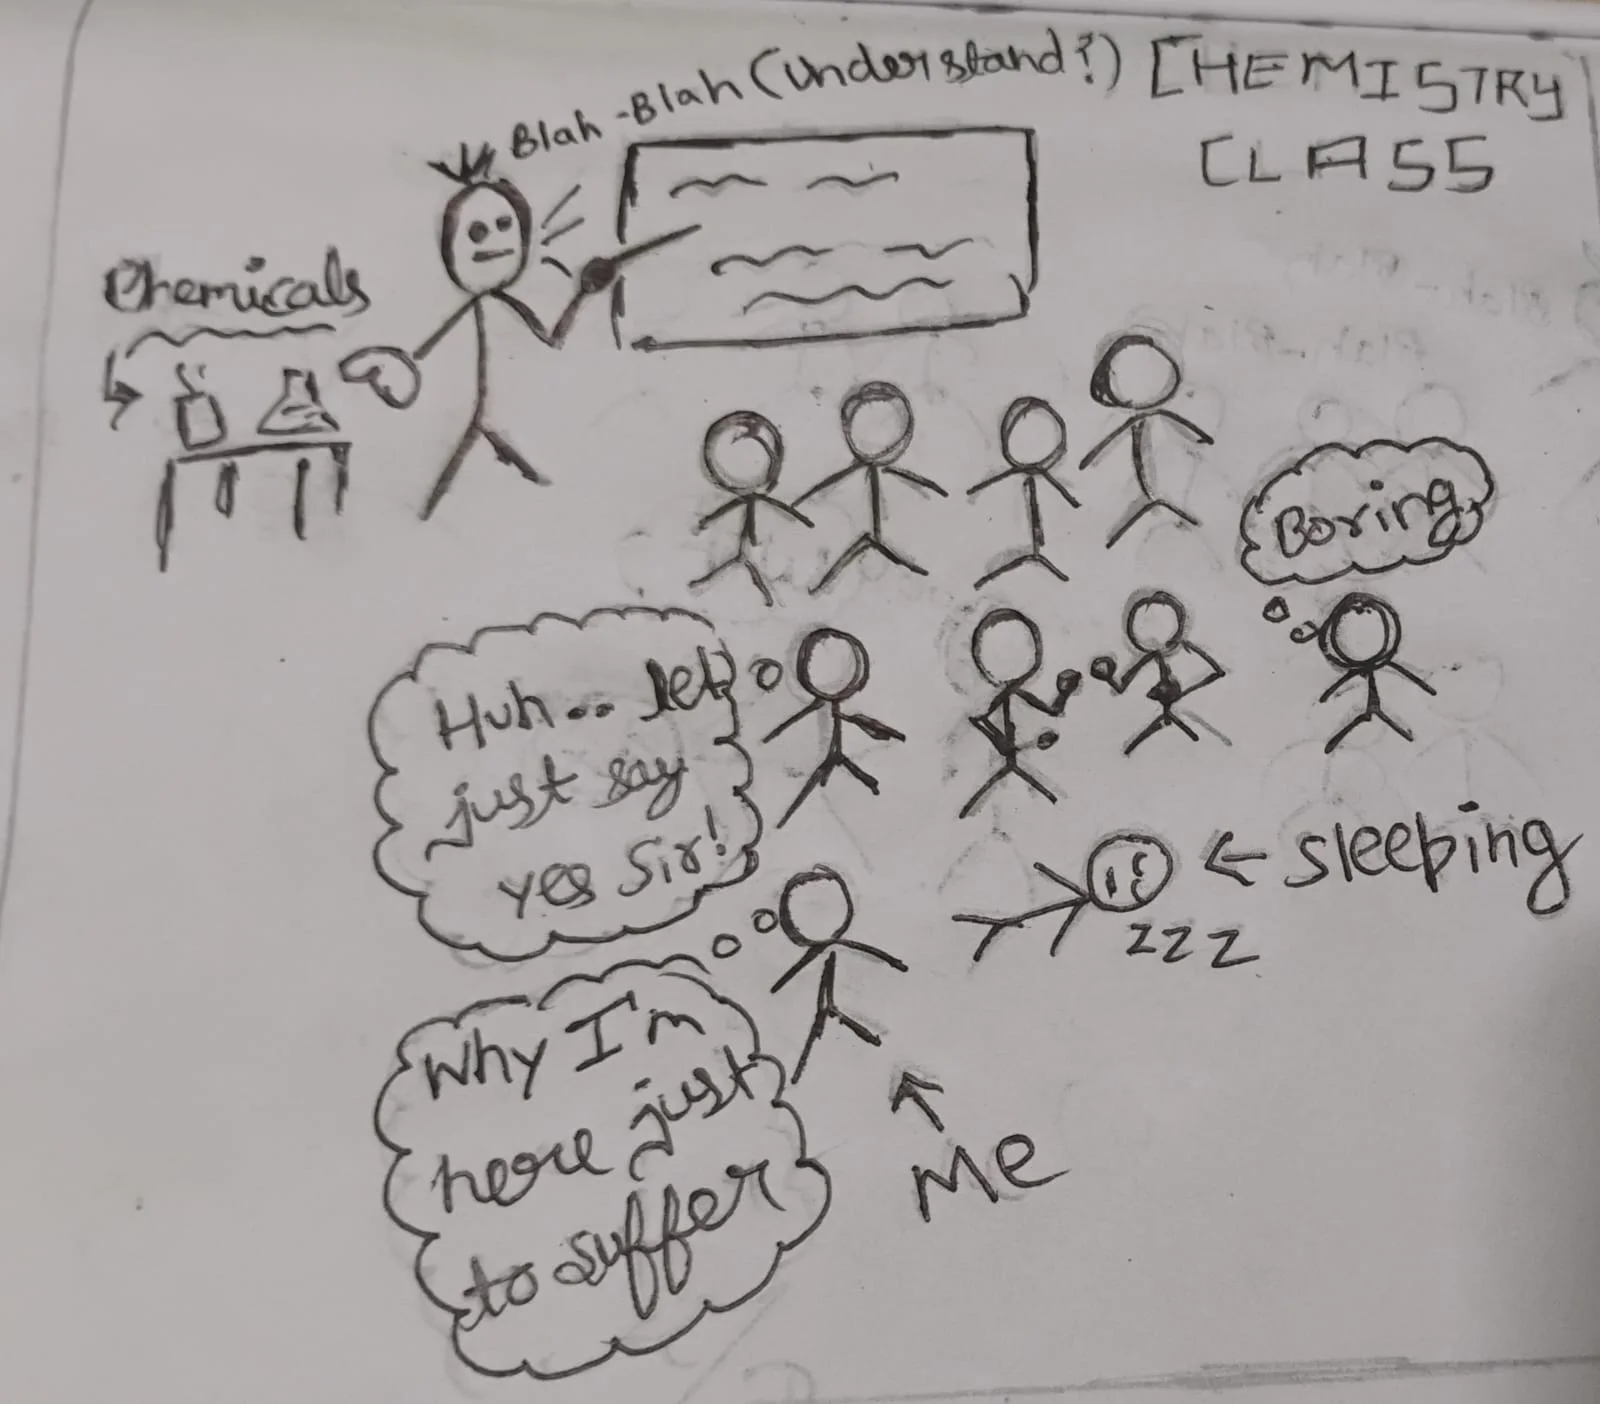 Blah-Blah (Understand?)
CHEMISTRY
CLASS
Chemicals
Boring
Huh.. let
just say
yes Sir!
← Sleeping
zzz
Why I'm
here just
to suffer
Me